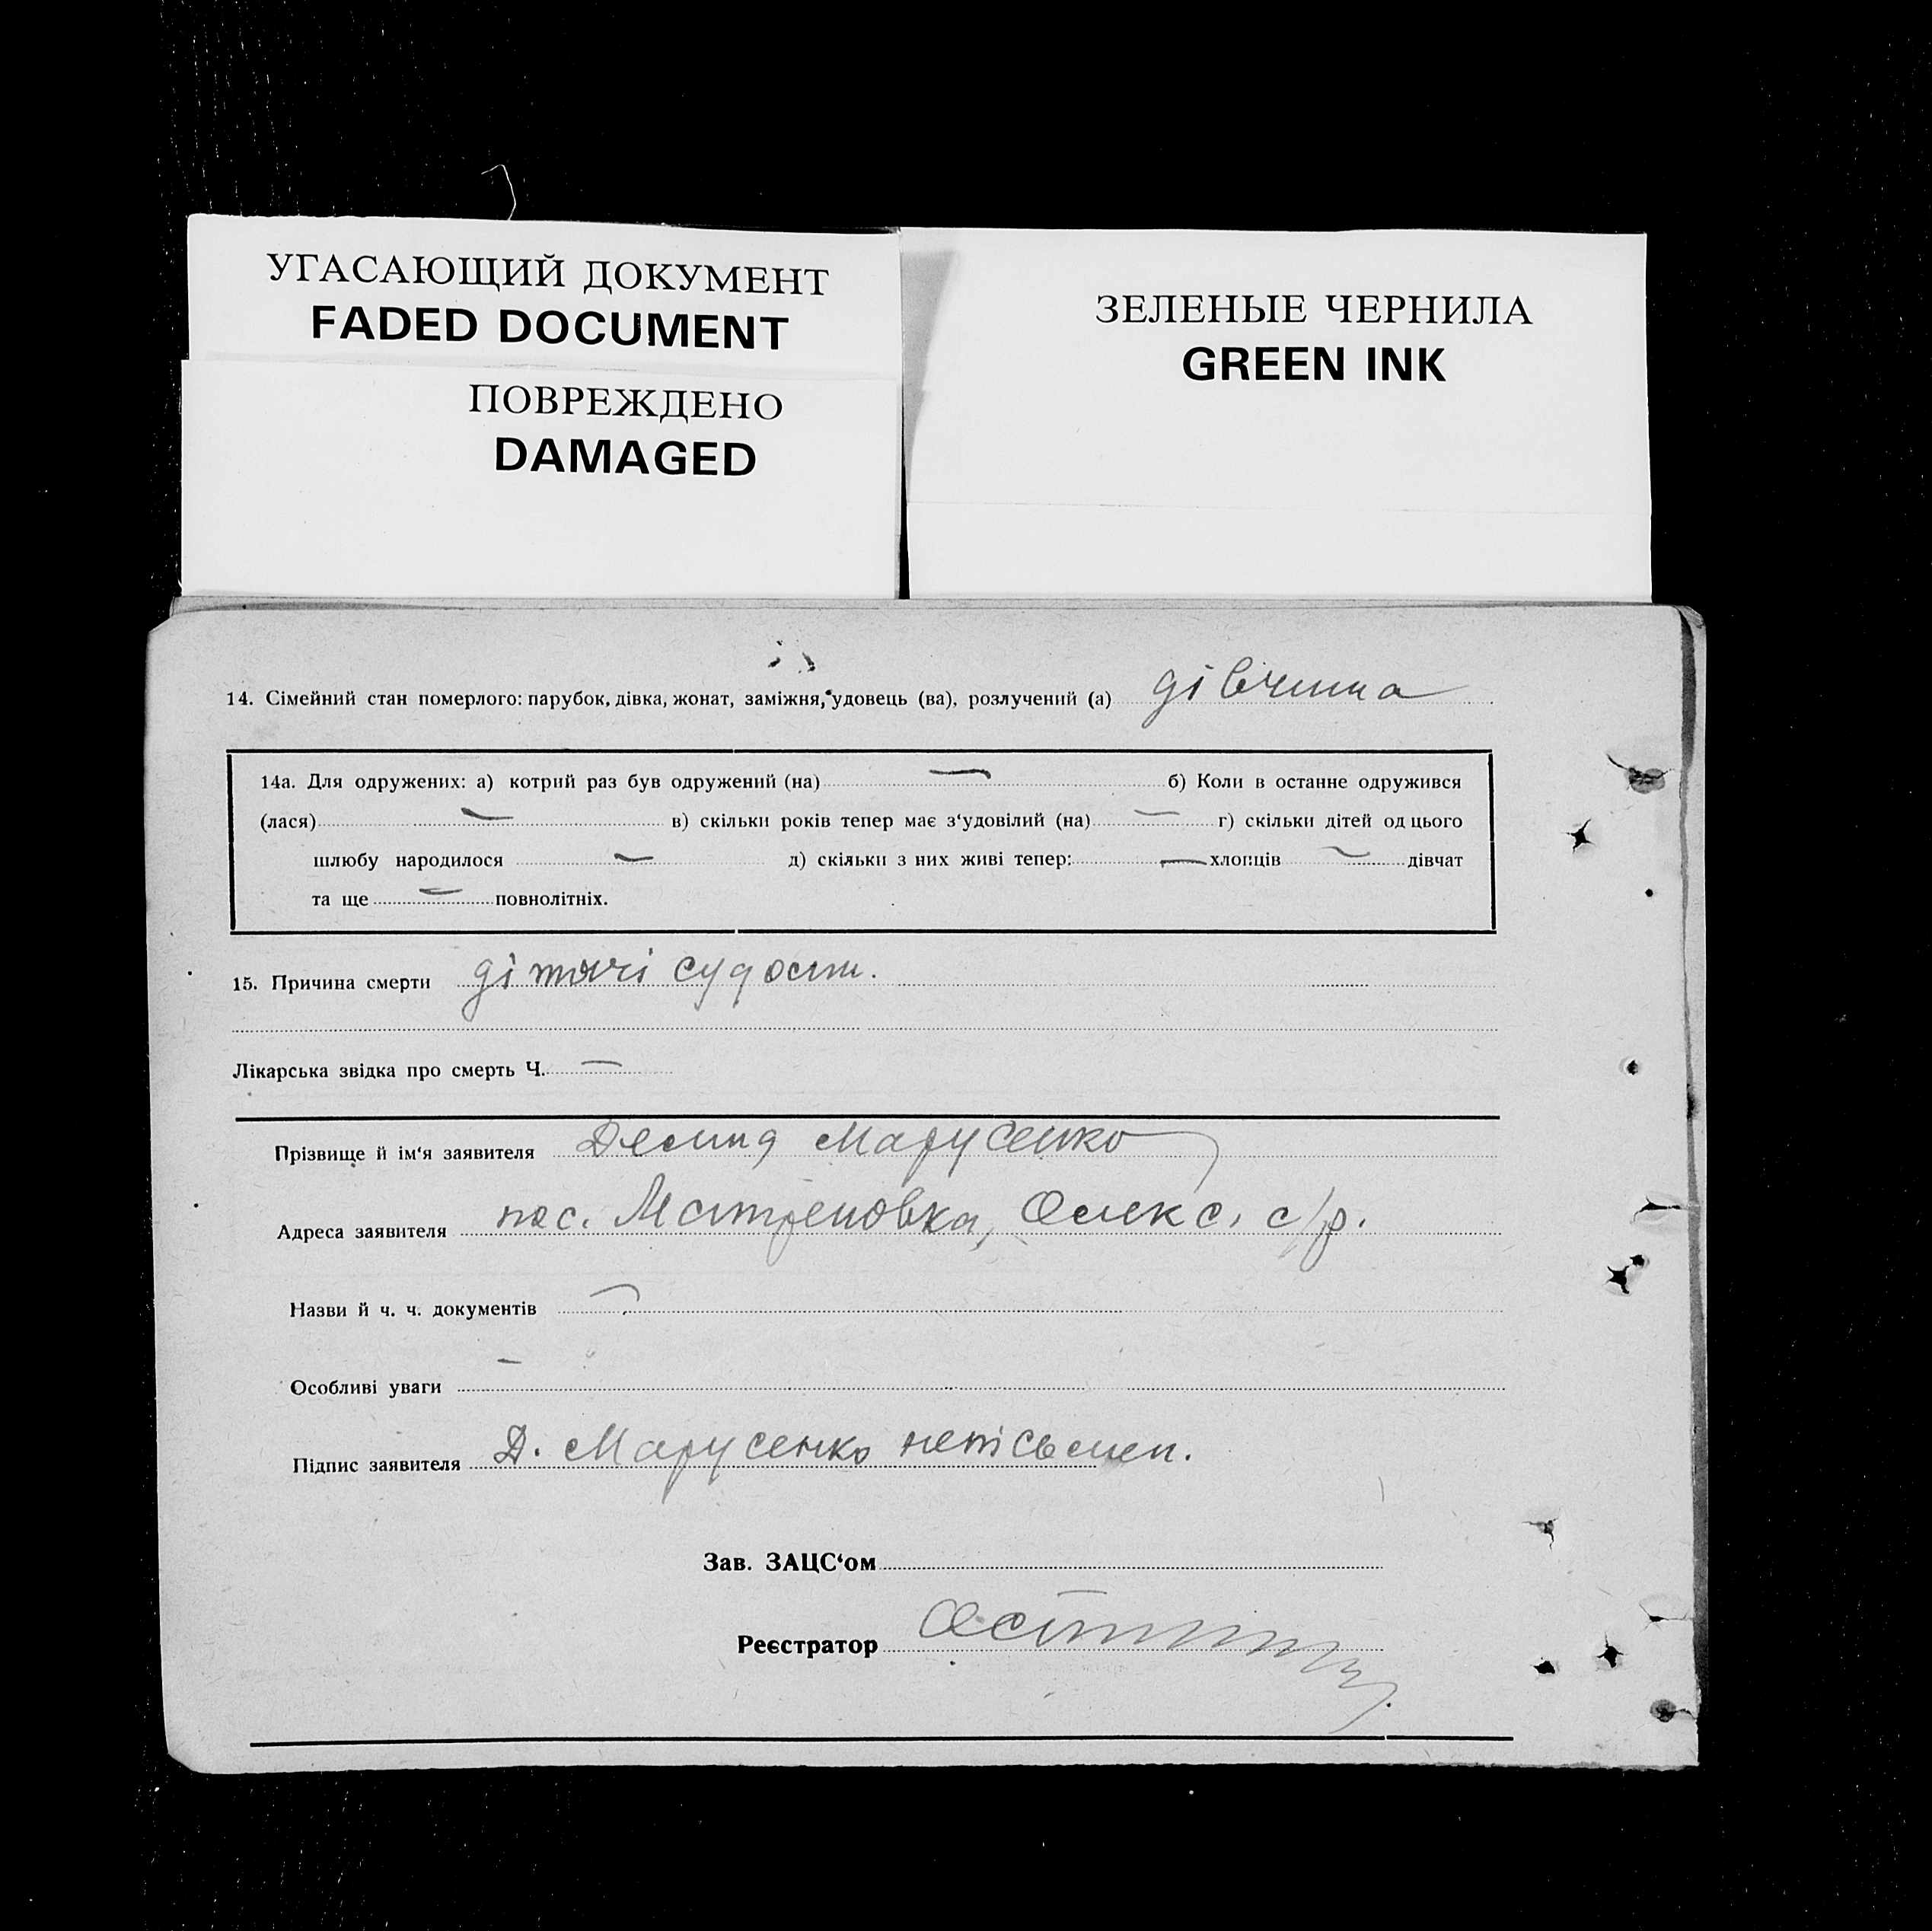 УГАСАЮЩИЙ ДОКУМЕНТ
FADED DOCUMENT
ПОВРЕЖДЕНО
DAMAGED
ЗЕЛЕНЫЕ ЧЕРНИЛА
GREEN INK
14. Сімейний стан померлого: парубок, дівка, жонат, заміжня, удовець (ва), розлучений (а) дівчина
14а. Для одружених: а) котрий раз був одружений (на) — б) Коли в останне одружився
(лася) — в) скільки років тепер має з‘удовілий (на) — г) скільки дітей од цього
шлюбу народилося — д) скільки з них живі тепер: — хлопців — дівчат
та ще — повнолітніх.
15. Причина смерти дітячі судоти.
Лікарська звідка про смерть Ч. —
Прізвище й ім‘я заявителя Демид Марусенко
Адреса заявителя пос. Олекс. с/р.
Назви й ч. ч. документів —
Особливі уваги —
Підпис заявителя Д. Марусенко непісьмен.
Зав. ЗАЦС‘ом
Реєстратор